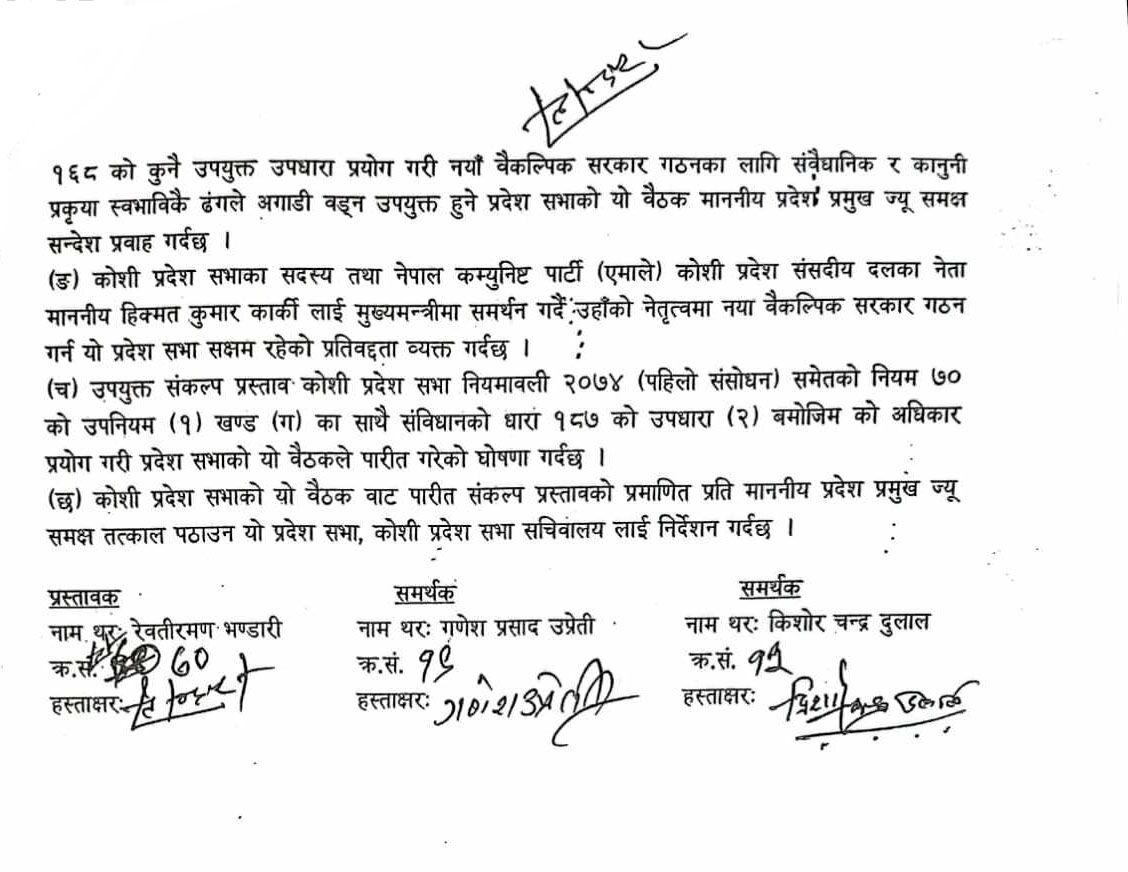 १६८ को कुनै उपयुक्त उपधारा प्रयोग गरी नयाँ वैकल्पिक सरकार गठनका लागि संवैधानिक र कानुनी
प्रकृया स्वभाविकै ढंगले अगाडी वड्न उपयुक्त हुने प्रदेश सभाको यो वैठक माननीय प्रदेश प्रमुख ज्यू समक्ष
सन्देश प्रवाह गर्दछ ।
(ङ) कोशी प्रदेश सभाका सदस्य तथा नेपाल कम्युनिष्ट पार्टी (एमाले) कोशी प्रदेश संसदीय दलका नेता
माननीय हिक्मत कुमार कार्की लाई मुख्यमन्त्रीमा समर्थन गर्दै उहाँको नेतृत्वमा नया वैकल्पिक सरकार गठन
गर्न यो प्रदेश सभा सक्षम रहेको प्रतिवद्दता व्यक्त गर्दछ ।
(च) उपयुक्त संकल्प प्रस्ताव कोशी प्रदेश सभा नियमावली २०७४ (पहिलो संसोधन) समेतको नियम ७०
को उपनियम (१) खण्ड (ग) का साथै संविधानको धारा १८७ को उपधारा (२) बमोजिम को अधिकार
प्रयोग गरी प्रदेश सभाको यो वैठकले पारीत गरेको घोषणा गर्दछ ।
(छ) कोशी प्रदेश सभाको यो वैठक वाट पारीत संकल्प प्रस्तावको प्रमाणित प्रति माननीय प्रदेश प्रमुख ज्यू
समक्ष तत्काल पठाउन यो प्रदेश सभा, कोशी प्रदेश सभा सचिवालय लाई निर्देशन गर्दछ ।
प्रस्तावक समर्थक समर्थक
नाम थरः रेवतीरमण भण्डारी नाम थरः गणेश प्रसाद उप्रेती नाम थरः किशोर चन्द्र दुलाल
क.सं. ६० क.सं. १९ क.सं.
हस्ताक्षरः हस्ताक्षरः गणेश उप्रेती हस्ताक्षरः